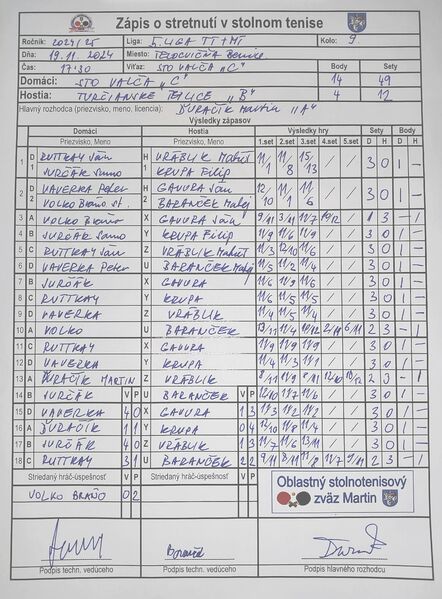 Zápis o stretnutí v stolnom tenise
Ročník: 2024/25 Liga: 5. LIGA TT+MT Kolo: 9
Dňa: 19.11.2024 Miesto: TELOCVIČŇA
Čas: 17:30 Víťaz: STO VALČA „C" Body Sety
Domáci: STO VALČA „C" 14 49
Hostia: TURČIANSKE TEPLICE „B" 4 12
Hlavný rozhodca (priezvisko, meno, licencia): ĎURAČÍK MARTIN „A"
Výsledky zápasov
Domáci Hostia Výsledky hry Sety Body
Priezvisko, Meno Priezvisko, Meno 1.set 2.set 3.set 4.set 5.set D H D H
1 D1 RUTTKAY Ján H1 VRÁBLIK Matúš 11/1 11/8 15/13 / / 3 0 1 –
JURČÁK Samo KRUPA Filip
2 D2 VAVERKA Peter H2 GAVURA Ján 12/10 11/1 11/6 / / 3 0 1 –
VOLKO Braňo st. BARANČEK Matej
3 A VOLKO Braňo X GAVURA Ján 9/11 3/11 11/7 10/12 / 1 3 – 1
4 B JURČÁK Samo Y KRUPA Filip 11/9 11/6 11/9 / / 3 0 1 –
5 C RUTTKAY Ján Z VRÁBLIK Matúš 11/3 12/10 11/6 / / 3 0 1 –
6 D VAVERKA Peter U BARANČEK Matej 11/5 11/2 11/4 / / 3 0 1 –
7 B JURČÁK X GAVURA 11/6 11/9 11/6 / / 3 0 1 –
8 C RUTTKAY Y KRUPA 11/6 11/5 11/5 / / 3 0 1 –
9 D VAVERKA Z VRÁBLIK 11/4 11/5 11/4 / / 3 0 1 –
10 A VOLKO U BARANČEK 13/11 11/4 10/12 2/11 6/11 2 3 – 1
11 C RUTTKAY X GAVURA 11/9 11/9 11/9 / / 3 0 1 –
12 D VAVERKA Y KRUPA 11/4 11/3 11/1 / / 3 0 1 –
13 A ĎURAČÍK MARTIN Z VRÁBLIK 8/11 11/9 2 3 – 1
14 B JURČÁK V P U BARANČEK V P 12/10 11/7 11/6 / / 3 0 1 –
15 D VAVERKA 4 0 X GAVURA 1 3 11/3 11/2 11/2 / / 3 0 1 –
16 A ĎURAČÍK 1 1 Y KRUPA 0 4 12/10 11/8 11/4 / / 3 0 1 –
17 B JURČÁK 4 0 Z VRÁBLIK 1 3 11/7 11/6 13/11 / / 3 0 1 –
18 C RUTTKAY 3 1 U BARANČEK 2 2 9/11 8/11 11/8 2 3 – 1
Striedaný hráč-úspešnosť Striedaný hráč-úspešnosť
VOLKO BRAŇO 0 2
Oblastný stolnotenisový
zväz Martin
Podpis techn. vedúceho Podpis techn. vedúceho Podpis hlavného rozhodcu